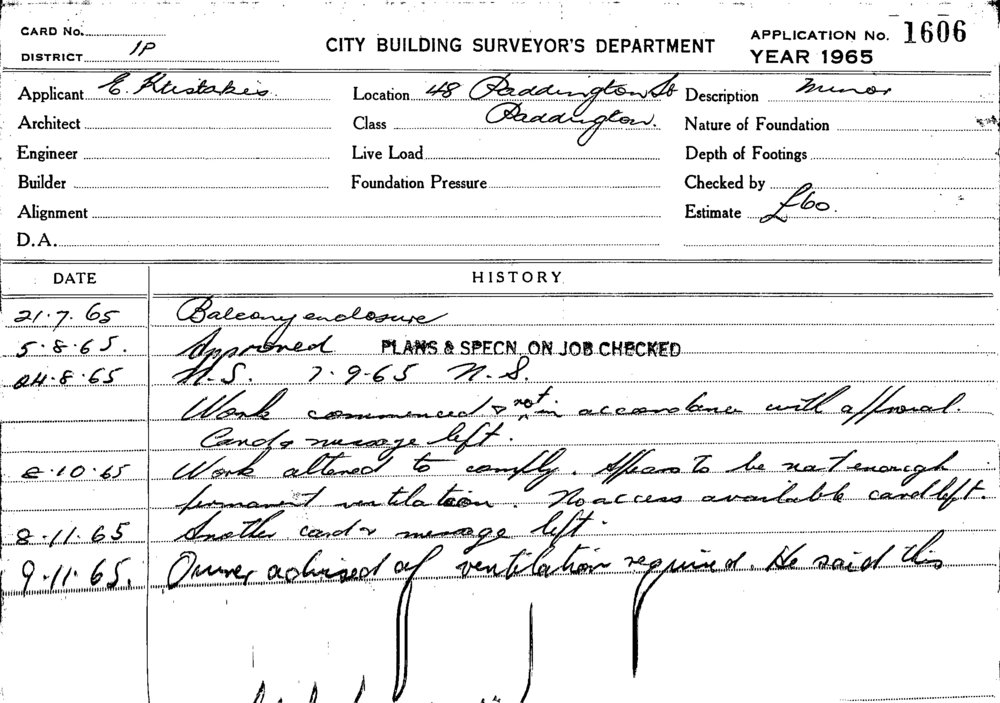 CARD No.
DISTRICT 1P
CITY BUILDING SURVEYOR'S DEPARTMENT
APPLICATION No. 1606
YEAR 1965
Applicant E. Kristakis
Location 48 Paddington St
Paddington.
Description Minor
Architect
Class
Nature of Foundation
Engineer
Live Load
Depth of Footings
Builder
Foundation Pressure
Checked by
Alignment
Estimate £60.
D.A.
DATE HISTORY
21.7.65 Balcony enclosure
5.8.65. Approved PLANS & SPECN. ON JOB CHECKED
24.8.65 N.S. 7.9.65 N.S.
Work commenced & not in accordance with approval.
Card & message left.
8.10.65 Work altered to comply. Appears to be not enough
permanent ventilation. No access available card left.
8.11.65 Another card & message left.
9.11.65. Owner advised of ventilation required. He said this